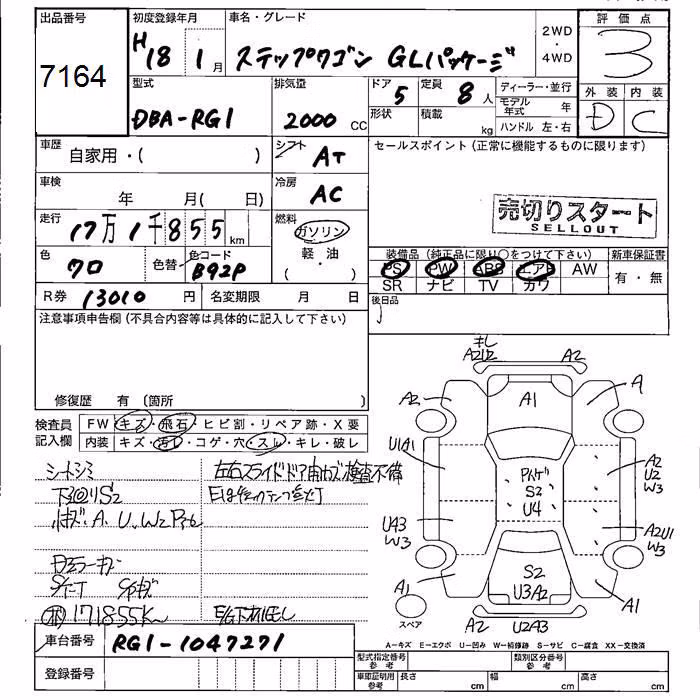 出品番号
7164
初度登録年月
H18 1月
車名・グレード
ステップワゴン GLパッケージ
2WD
・
4WD
評価点
3
外装 内装
D C
型式
DBA-RG1
排気量
2000 CC
ドア
5
形状
定員
8人
積載
kg
ディーラー・並行
モデル年式 年
ハンドル 左・右
車歴
自家用・( )
シフト
AT
車検
年 月( 日)
冷房
AC
走行
17万1千855km
燃料
ガソリン
・
軽・油
( )
色
クロ
色替
色コード
B92P
R券 13010円
名変期限 月 日
セールスポイント(正常に機能するものに限ります)
売切りスタート
SELLOUT
装備品(純正品に限り○をつけて下さい)
PS PW ABS エアB AW
SR ナビ TV カワ
新車保証書
有・無
後日品
注意事項申告欄(不具合内容等は具体的に記入して下さい)
修復歴 有(箇所 )
検査員
記入欄
FW キズ・飛石・ヒビ割・リペア跡・X要
内装 キズ・汚レ・コゲ・穴・スレ・キレ・破レ
シートシミ
下回りS2
小キズ、A、U、W2
Dミラーキズ
171855K
左右スライドドア
E/G下オイモレ
キレ
A2U2
A2
A2
A1
A
U1A1
A2
U2
W3
S2
U4
U43
W3
A2U1
W3
A1
S2
U3A2
A1
A2
U2A3
スペア
A-キズ E-エクボ U-凹み W-補修跡 S-サビ C-腐食 XX-交換済
車台番号 RG1-1047271
登録番号
型式指定番号
参考
類別区分番号
参考
車庫証明用
参考
長さ cm
幅 cm
高さ cm